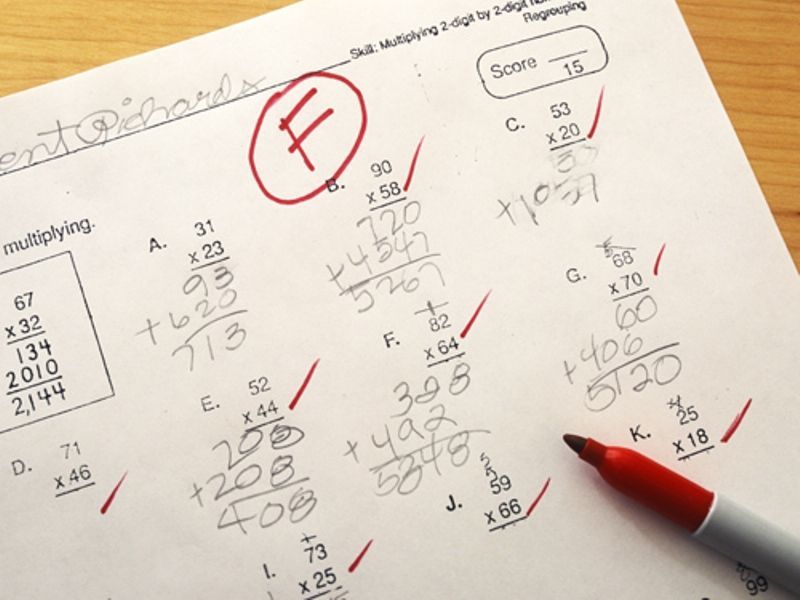 Skill: Multiplying 2-digit by 2-digit
Regrouping
Score ____
15
ent Richards
F
multiplying.
67
x 32
134
2010
2,144
A.
31
x 23
93
+ 620
713
B.
90
x 58
720
+ 4547
5267
C.
53
x 20
D.
71
x 46
E.
52
x 44
208
+ 208
408
F.
82
x 64
328
+ 492
5248
G.
68
x 70
60
+ 406
5120
I.
73
x 25
J.
59
x 66
K.
25
x 18
99